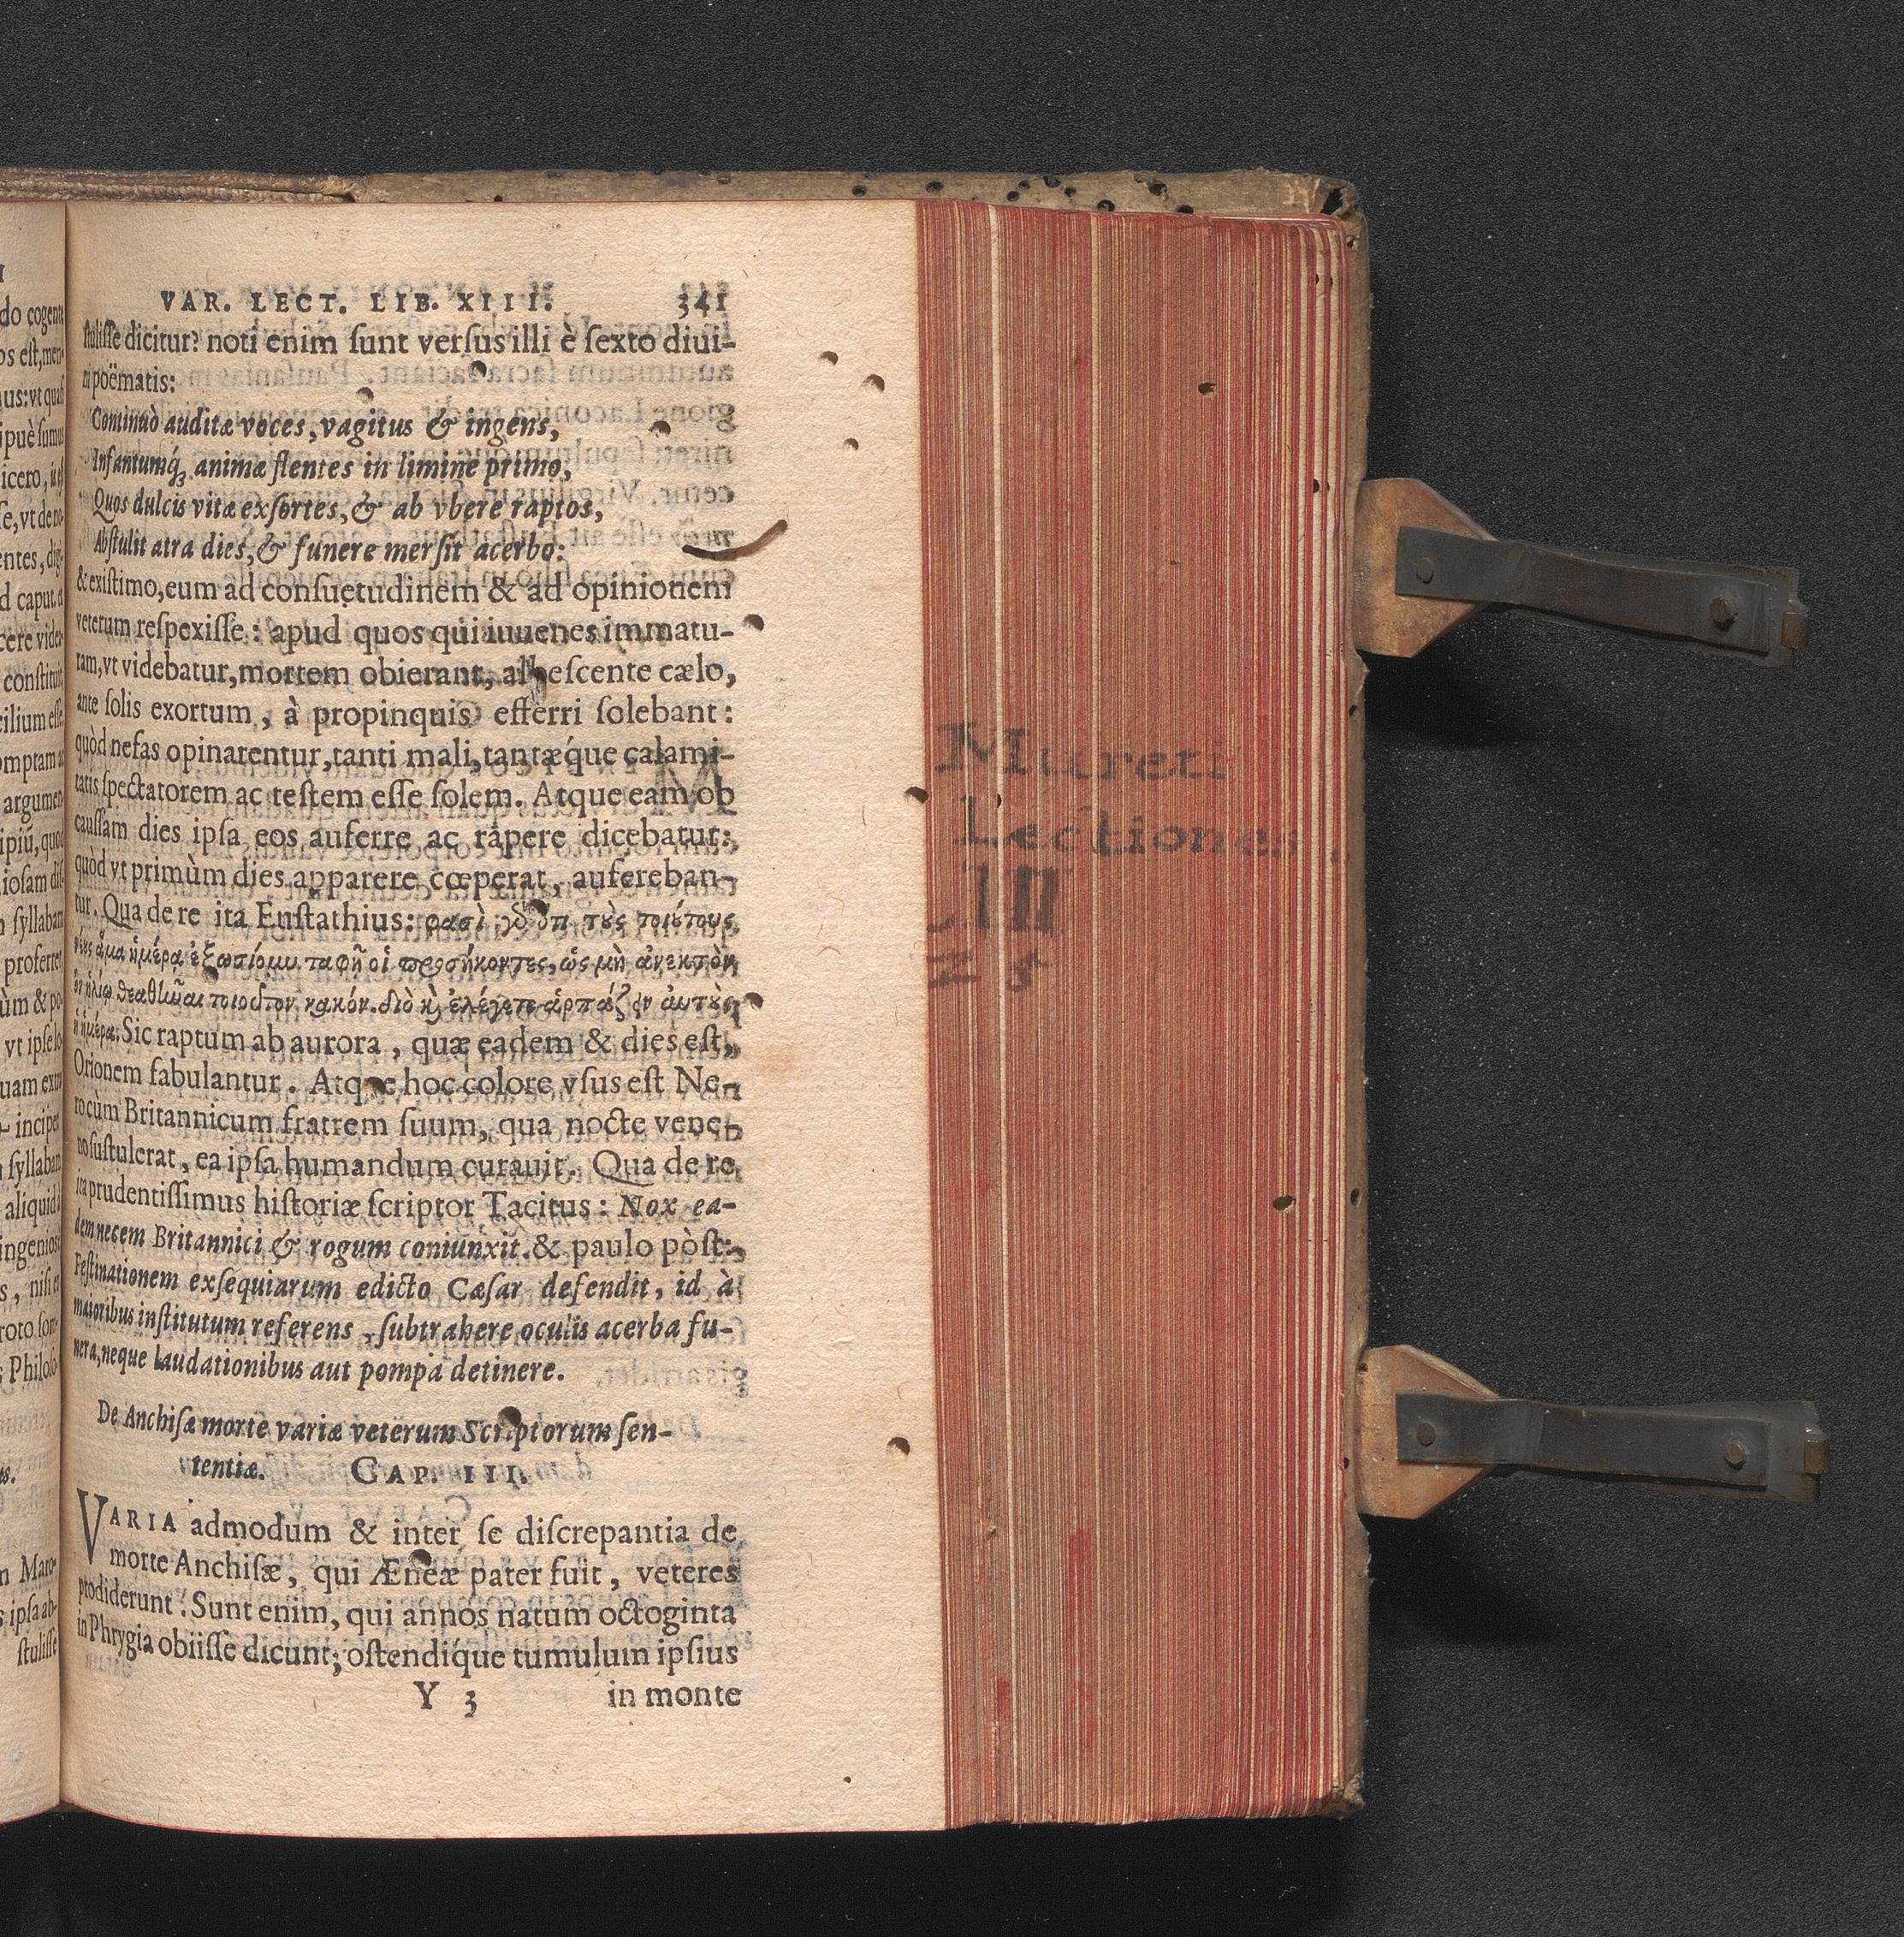 VAR. LECT. LIB. XIII. 341
ſtuliſſe dicitur? noti enim ſunt verſus illi è ſexto diui-
ni poëmatis:
Continuò auditæ voces, vagitus & ingens,
Infantumq́; animæ flentes in limine primo,
Quos dulcis vitæ exſortes, & ab vbere raptos,
Abſtulit atra dies, & funere merſit acerbo:
& exiſtimo, eum ad conſuetudinem & ad opinionem
veterum reſpexiſſe: apud quos qui iuuenes immatu-
ram, vt videbatur, mortem obierant, albeſcente cælo,
ante ſolis exortum, à propinquis efferri ſolebant:
quòd nefas opinarentur, tanti mali, tantæq́ue calami-
tatis ſpectatorem ac teſtem eſſe ſolem. Atque eam ob
cauſſam dies ipſa eos auferre ac rapere dicebatur:
quòd vt primùm dies apparere cœperat, aufereban-
tur. Qua de re ita Euſtathius: φασὶ γὸ ὅτι τοὺς τοιούτους
νέους ἅμα ἡμέρᾳ ἐξῶσίομυ ταφῇ οἱ προσήκοντες, ὡς μὴ ἀνεκτὸν
ὂν ἡλίῳ θεαθῆναι τοιοῦτον κακόν. διὸ καὶ ἐλέγετο ἁρπάζειν αὐτοὺς
ἡ ἡμέρα. Sic raptum ab aurora, quæ eadem & dies eſt,
Orionem fabulantur. Atque hoc colore vſus eſt Ne-
ro cùm Britannicum fratrem ſuum, qua nocte vene-
no ſuſtulerat, ea ipſa humandum curauit. Qua de re
ita prudentiſſimus hiſtoriæ ſcriptor Tacitus: Nox ea-
dem necem Britannici & rogum coniunxit. & paulo pòſt:
Feſtinationem exſequiarum edicto Cæſar defendit, id à
maioribus inſtitutum referens, ſubtrahere oculis acerba fu-
nera, neque laudationibus aut pompa detinere.
De Anchiſæ morte variæ veterum Scriptorum ſen-
tentiæ. CAP. III.
VARIA admodum & inter ſe diſcrepantia de
morte Anchiſæ, qui Æneæ pater fuit, veteres
prodiderunt. Sunt enim, qui annos natum octoginta
in Phrygia obiiſſe dicunt; oſtendíque tumulum ipſius
Y 3 in monte
Mureti
Lectiones.